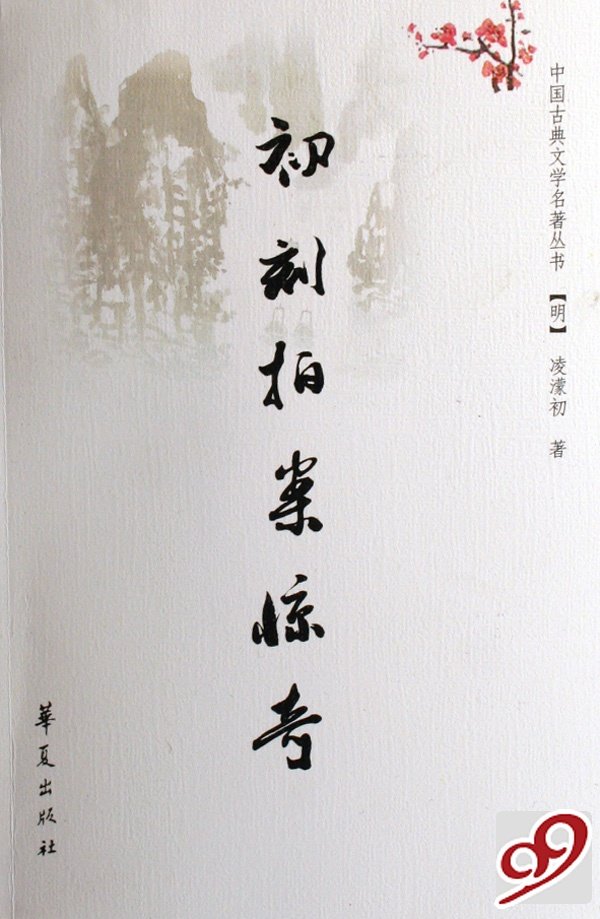 中国古典文学名著丛书 【明】 凌濛初 著
初刻拍案惊奇
華夏出版社
99